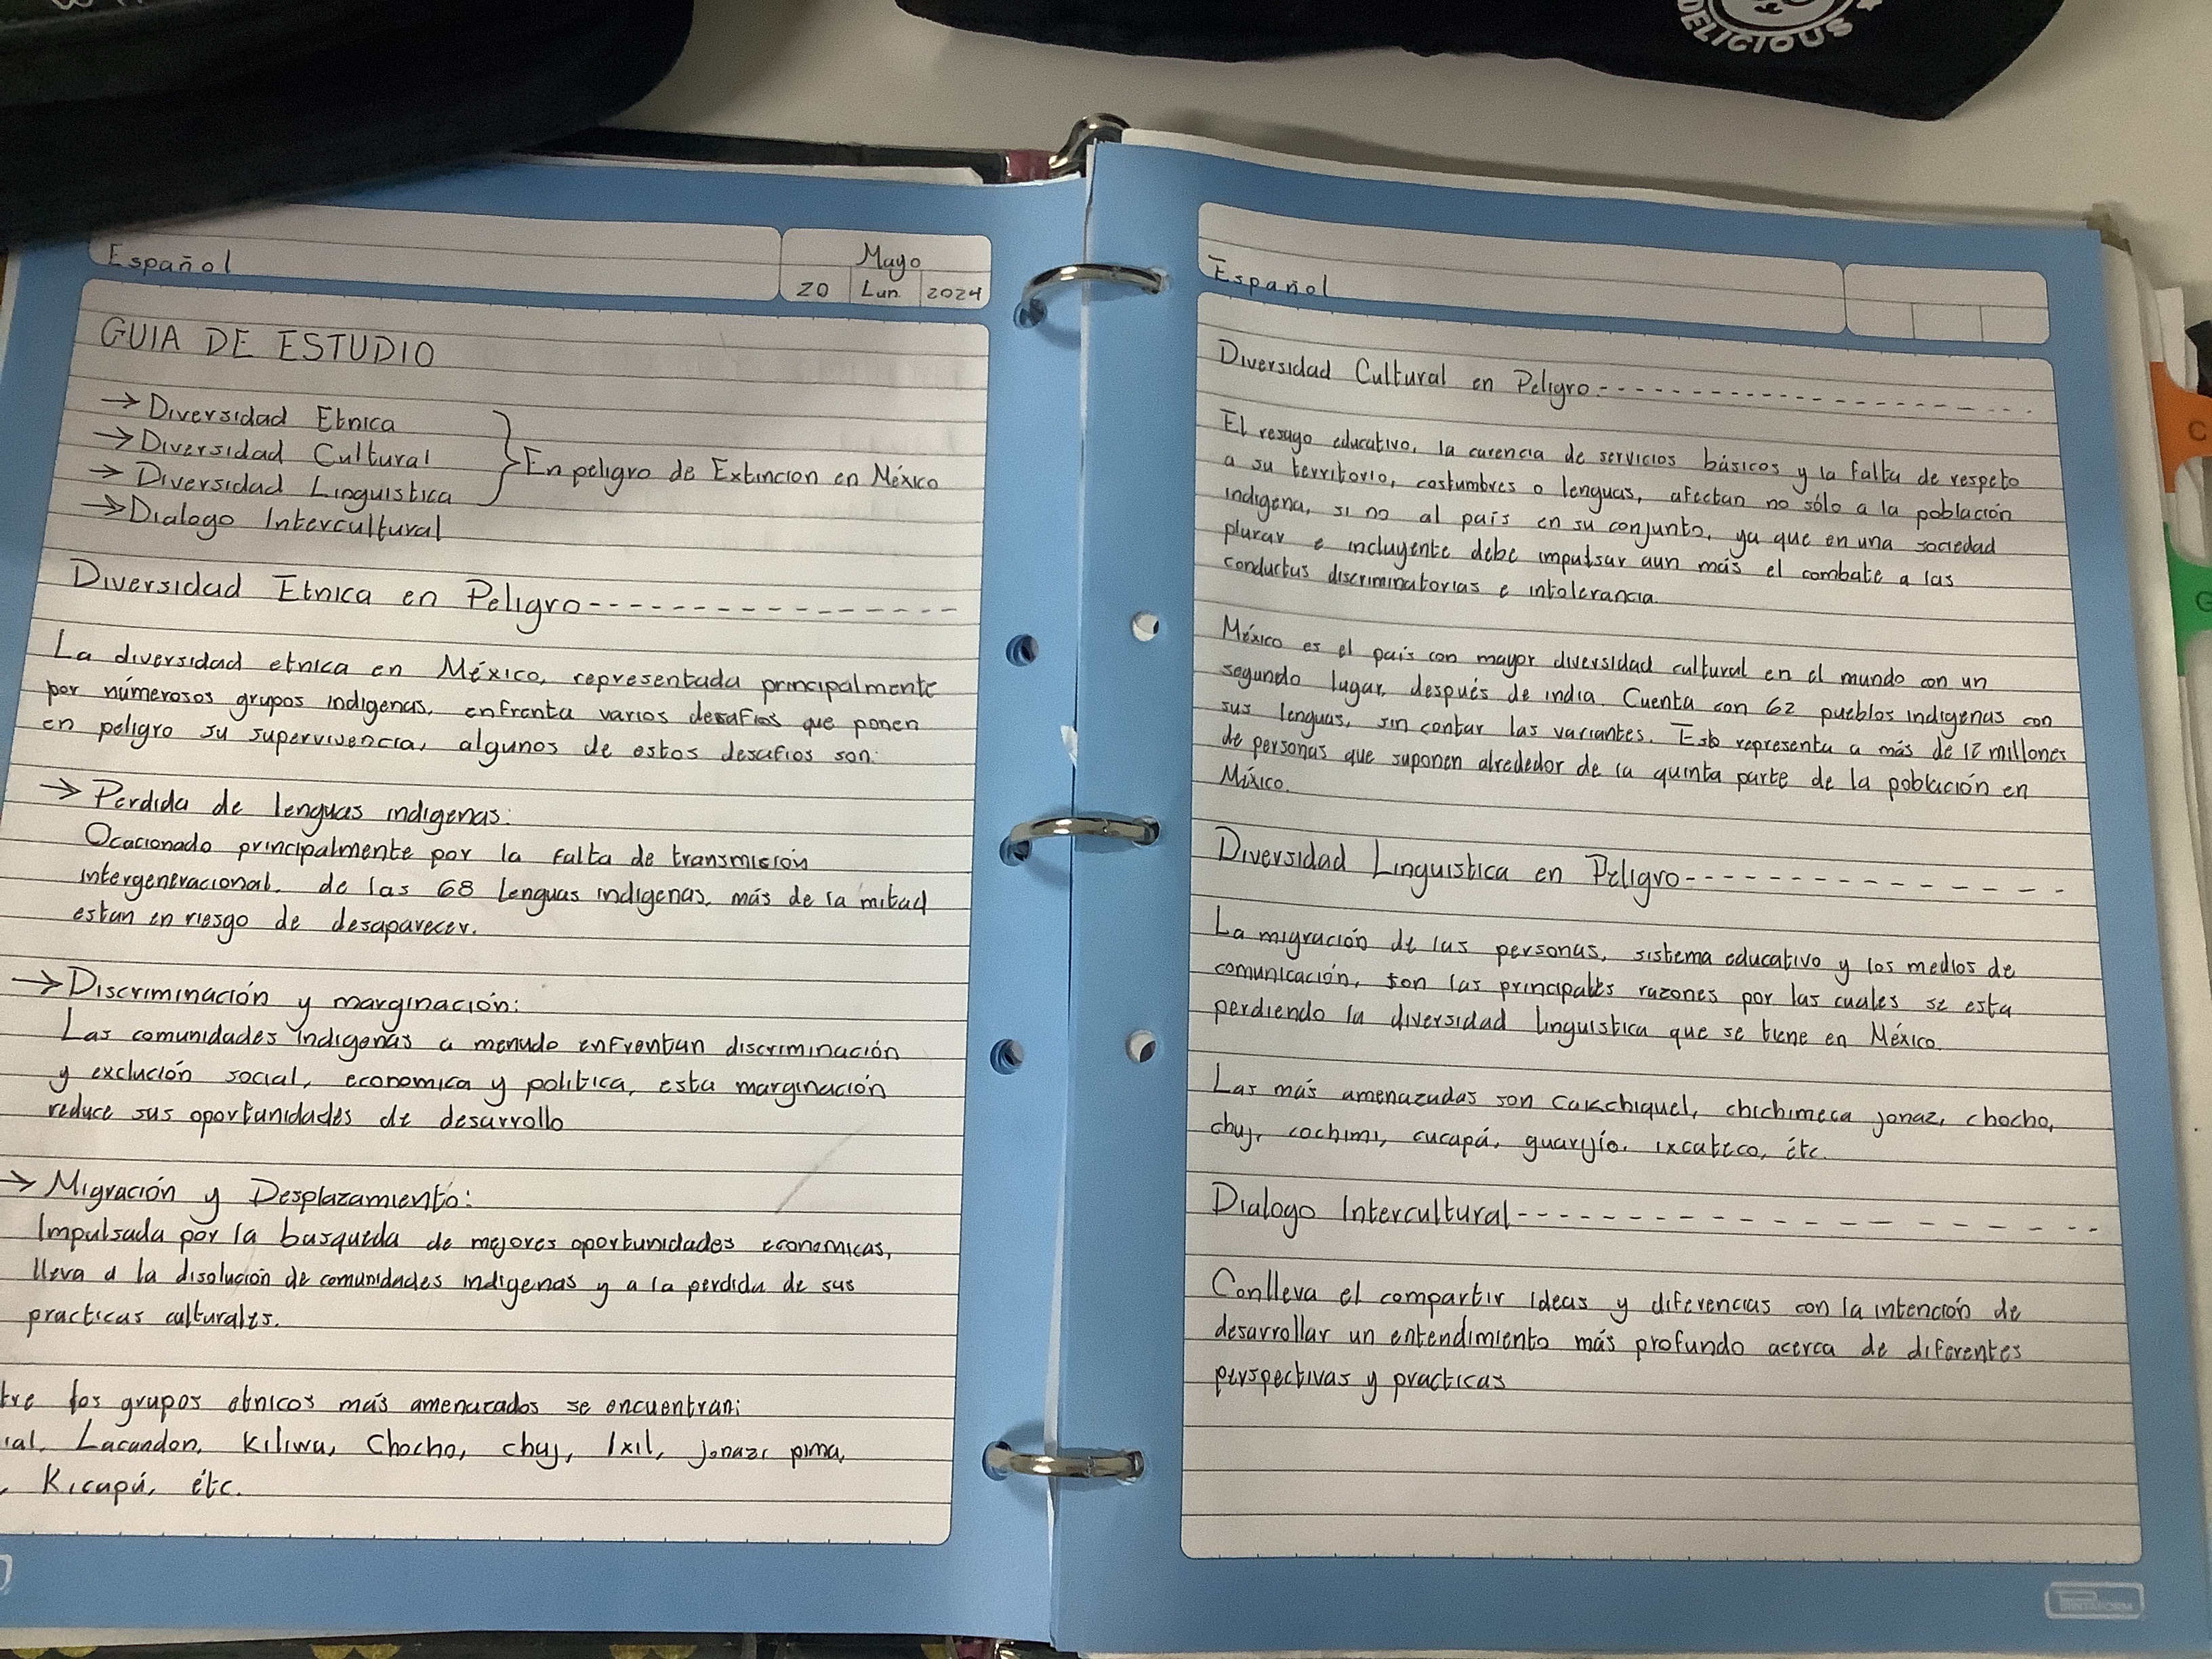 DELICIOUS
Español
Mayo
20 Lun. 2024
GUIA DE ESTUDIO
→ Diversidad Etnica
→ Diversidad Cultural
→ Diversidad Linguistica
En peligro de Extincion en México
→ Dialogo Intercultural
Diversidad Etnica en Peligro----------------
La diversidad etnica en México, representada principalmente
por númerosos grupos indigenas, enfrenta varios desafios que ponen
en peligro su supervivencia, algunos de estos desafios son:
→ Perdida de lenguas indigenas:
Ocacionado principalmente por la falta de transmisión
intergeneracional. de las 68 lenguas indigenas, más de la mitad
estan en riesgo de desaparecer.
→ Discriminación y marginación:
Las comunidades indigenas a menudo enfrentan discriminación
y exclución social, economica y politica, esta marginación
reduce sus oportunidades de desarrollo
→ Migración y Desplazamiento:
Impulsada por la busqueda de mejores oportunidades economicas,
lleva a la disolución de comunidades indigenas y a la perdida de sus
practicas culturales.
tre los grupos etnicos más amenazados se encuentran:
ial, Lacandon, Kiliwa, Chocho, chuj, Ixil, jonaz, pima,
, Kicapú, étc.
Español
Diversidad Cultural en Peligro------------------
El resago educativo, la carencia de servicios básicos y la falta de respeto
a su territorio, costumbres o lenguas, afectan no sólo a la población
indigena, si no al país en su conjunto, ya que en una sociedad
plurar e incluyente debe impulsar aun más el combate a las
conductas discriminatorias e intolerancia.
México es el país con mayor diversidad cultural en el mundo con un
segundo lugar, después de india. Cuenta con 62 pueblos indigenas con
sus lenguas, sin contar las variantes. Esto representa a más de 12 millones
de personas que suponen alrededor de la quinta parte de la población en
México.
Diversidad Linguistica en Peligro--------------
La migración de las personas, sistema educativo y los medios de
comunicación, son las principales razones por las cuales se esta
perdiendo la diversidad linguistica que se tiene en México.
Las más amenazadas son cakchiquel, chichimeca jonaz, chocho,
chuj, cochimi, cucapá, guarijío, ixcateco, étc.
Dialogo Intercultural--------------------
Conlleva el compartir ideas y diferencias con la intención de
desarrollar un entendimiento más profundo acerca de diferentes
perspectivas y practicas
C
G
PRINTAFORM